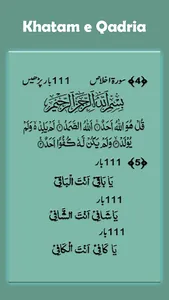 Khatam e Qadria
﴿4﴾ سورۃ اخلاص 111 بار پڑھیں
بِسْمِ اللهِ الرَّحْمٰنِ الرَّحِيْمِ
قُلْ هُوَ اللهُ اَحَدٌ ۚ اَللهُ الصَّمَدُ ۚ لَمْ يَلِدْ ۙ وَلَمْ
يُوْلَدْ ۙ وَلَمْ يَكُنْ لَّهٗ كُفُوًا اَحَدٌ
﴿5﴾ 111 بار
يَا بَاقِيْ اَنْتَ الْبَاقِيْ
111 بار
يَا شَافِيْ اَنْتَ الشَّافِيْ
111 بار
يَا كَافِيْ اَنْتَ الْكَافِيْ